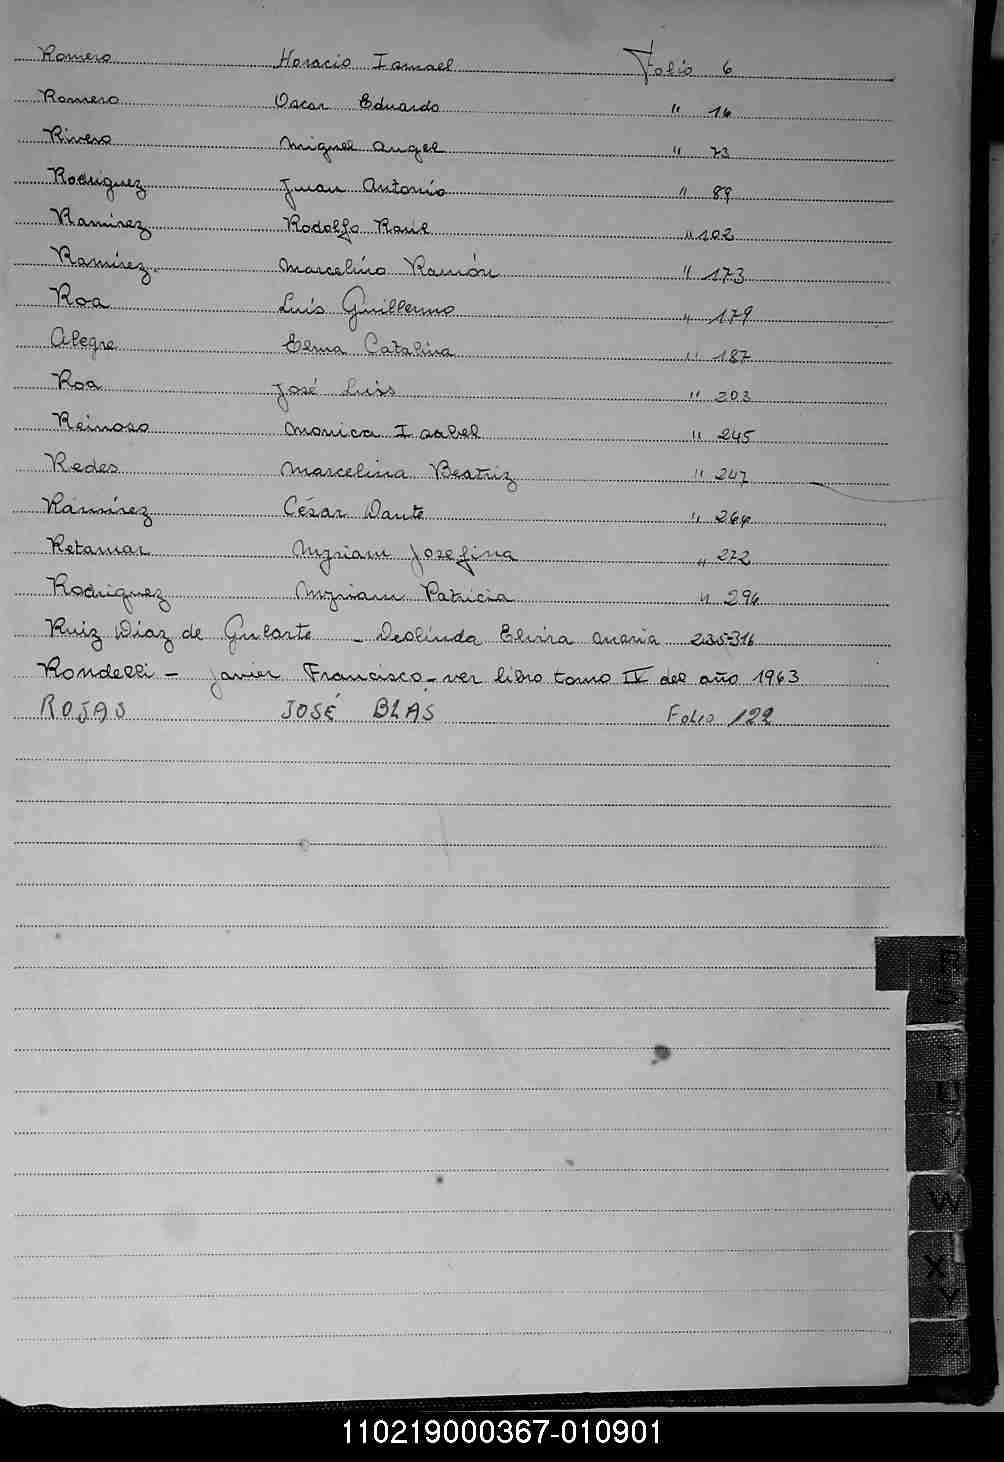 Romero Horacio Ismael Folio 6
Romero Oscar Eduardo " 16
Rivero Miguel Angel " 73
Rodriguez Juan Antonio " 89
Ramirez Rodolfo Raúl " 102
Ramírez Marcelino Ramón " 173
Roa Luís Guillermo " 179
Alegre Elma Catalina " 187
Roa José Luis " 203
Reinoso Monica Isabel " 245
Redes Marcelina Beatriz " 247
Ramírez César Dante " 264
Retamar Myriam Josefina " 272
Rodriguez Myriam Patricia " 296
Ruiz Diaz de Gularte - Deolinda Elvira Maria 235-316
Rondelli - Javier Francisco - ver libro tomo IV del año 1963
ROJAS JOSÉ BLAS Folio 122
R
U
V
W
X
Y
110219000367-010901